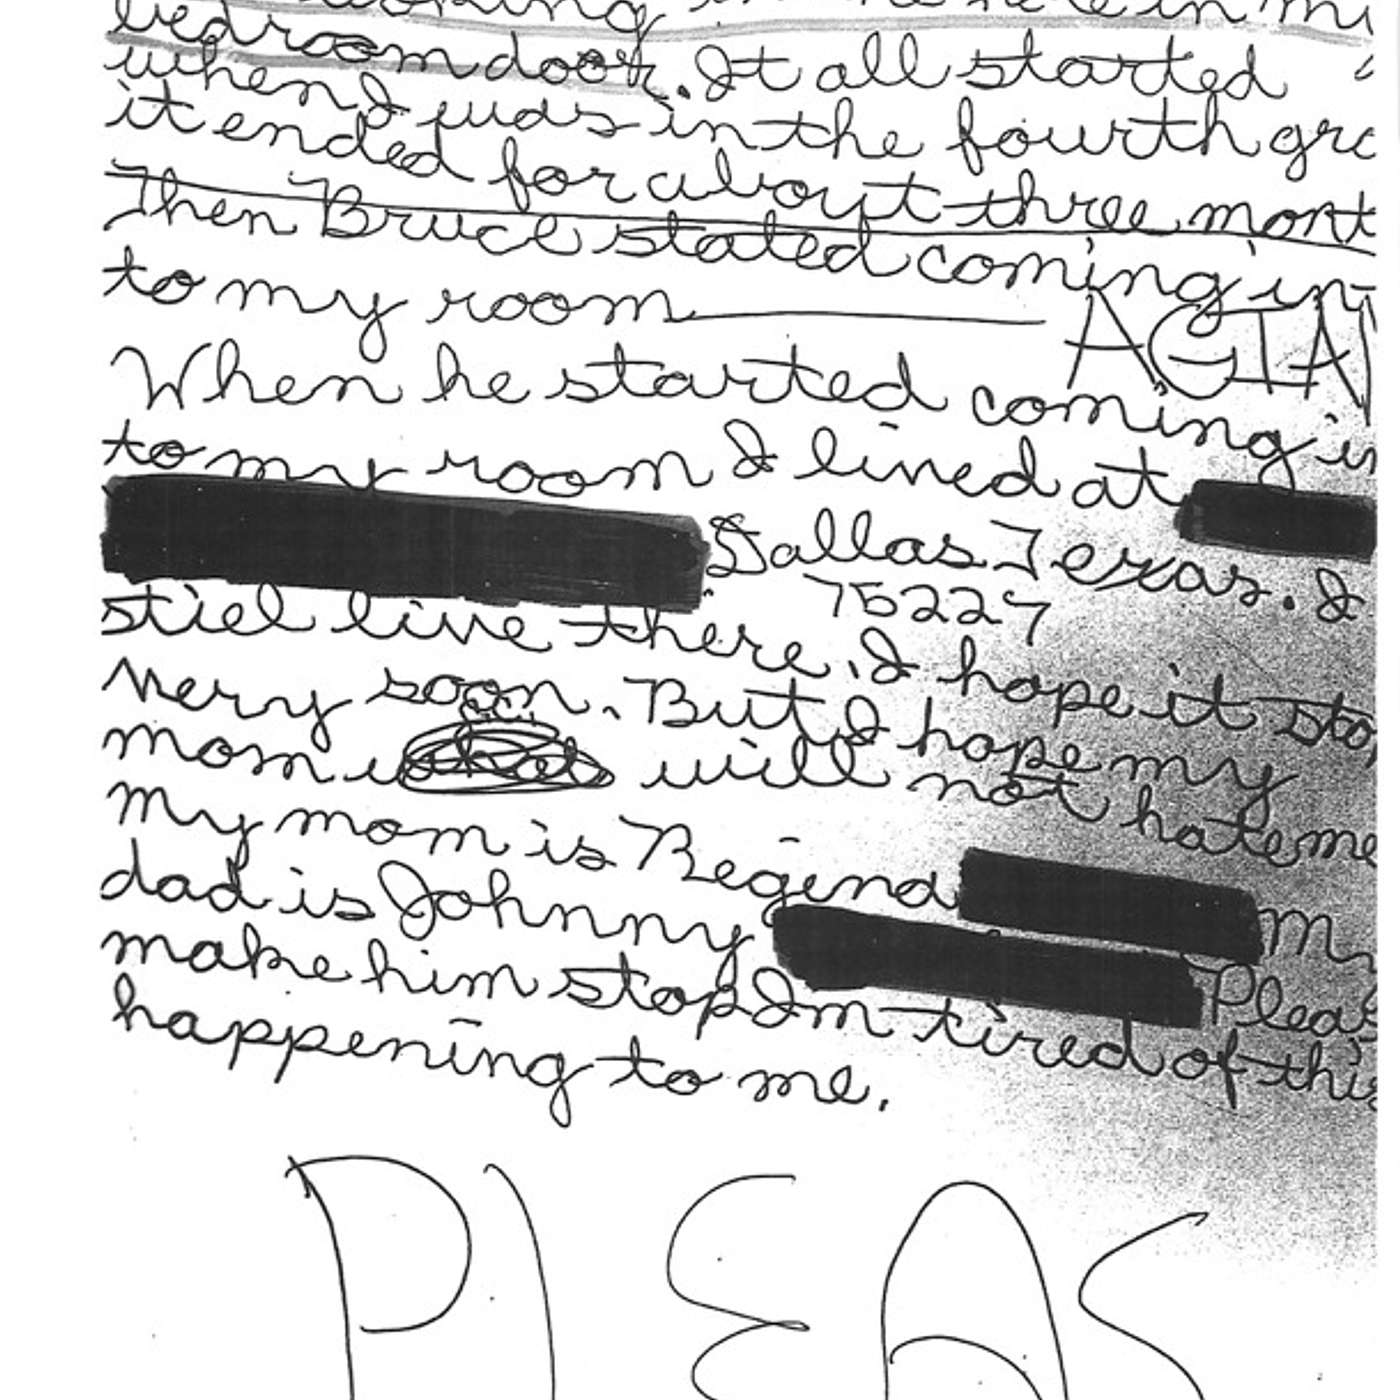 looking in the hole in my
bedroom door. It all started
when I was in the fourth gra
it ended for about three mont
Then Bruce stated coming in
to my room AGIAN
When he started coming in
to my room I lived at
Dallas Texas. I
75227
stiel live there. I hope it stop
very soon. But I hope my
mom will not hate me
My mom is Regina my
dad is Johnny Pleas
make him stop Im tired of this
happening to me.
PLEAS